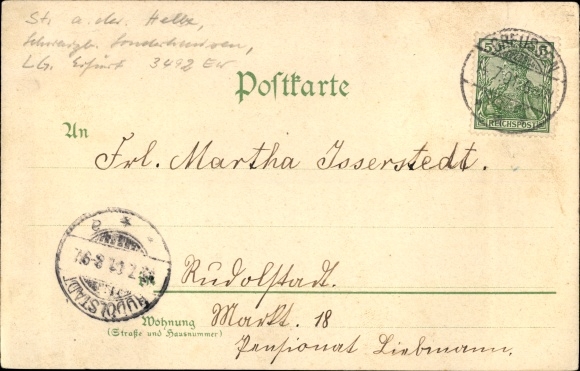 Str. a. der. Helbe,
Schwarzb. Sondershausen,
LG. Erfurt 3492 EW
Postkarte
GREUSSEN
REICHSPOST
An
Frl. Martha Isserstedt.
RUDOLSTADT
Rudolstadt.
Wohnung
(Straße und Hausnummer)
Markt. 18
Pensionat Liebmann.